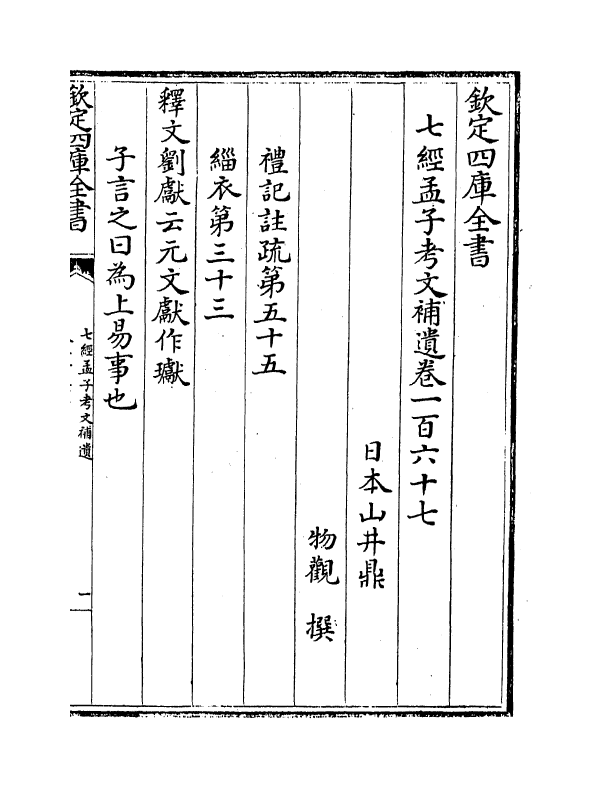 欽定四庫全書
七經孟子考文補遺卷一百六十七
日本山井鼎
物觀 撰
禮記註疏第五十五
緇衣第三十三
釋文劉獻云元文獻作瓛
子言之曰為上易事也
欽定四庫全書
七經孟子考文補遺
一